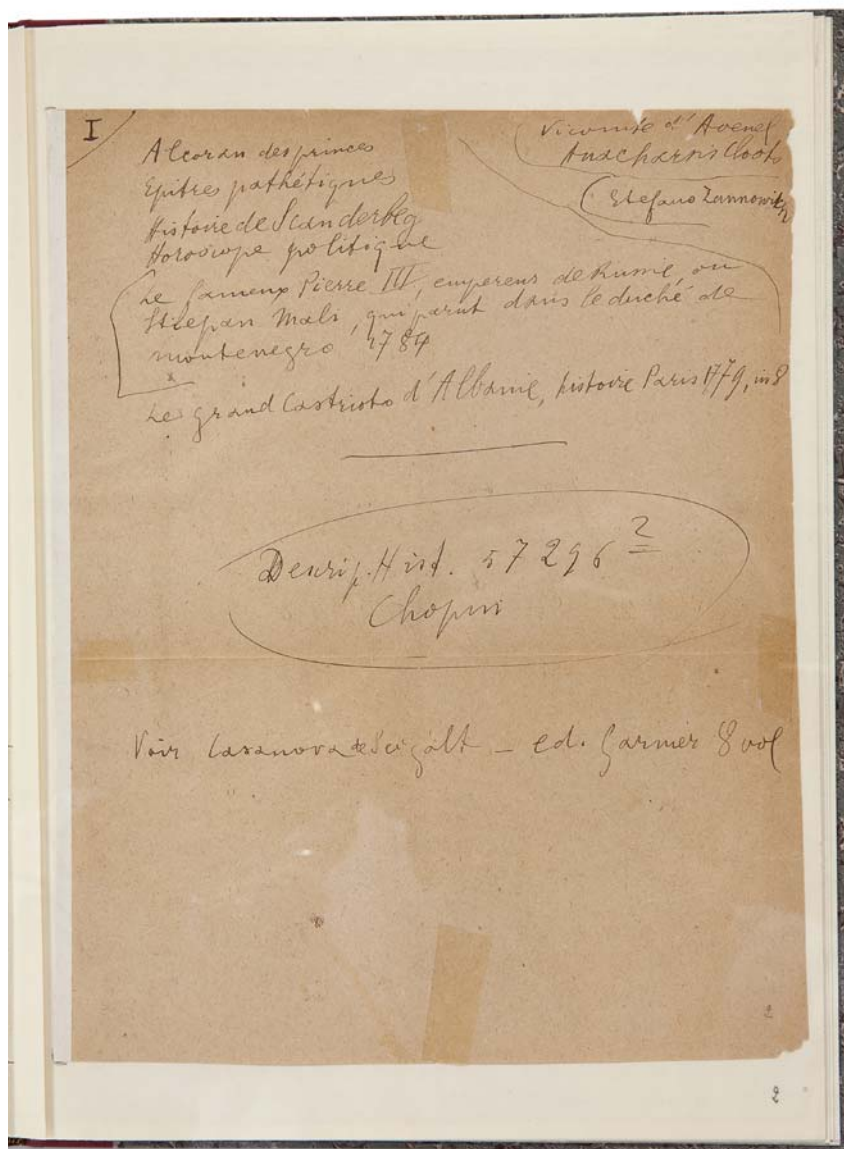 I
Vicomte d'Avenel
Anacharsis Cloots
Stefano Zannowich
Alcoran des princes
Epitres pathétiques
Histoire de Scanderbeg
Horoscope politique
Le fameux Pierre III, empereur de Russie, ou
Stiepan Mali, qui parut dans le duché de
montenegro 1784
x
Le grand Castrioto d'Albanie, histoire Paris 1779, in 8
Descrip. Hist. 57296 2
Chopin
Voir Casanova de Seingalt – ed. Garnier 8 vol
2
2